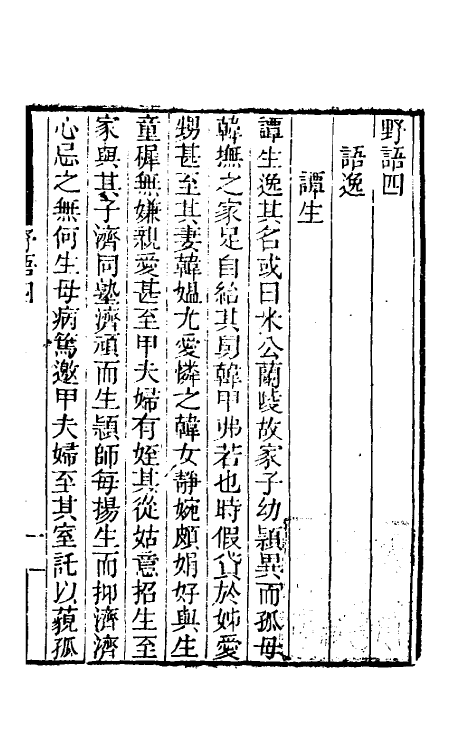 野語四
語逸
譚生
譚生逸其名或曰水公蘭陵故家子幼穎異而孤母
韓撫之家足自給其舅韓甲弗若也時假貸於姊愛
甥甚至其妻韓媼尤愛憐之韓女靜婉頗娟好與生
童穉無嫌親愛甚至甲夫婦有姪其從姑意招生至
家與其子濟同塾濟頑而生穎師每揚生而抑濟濟
心忌之無何生母病篤邀甲夫婦至其室託以藐孤
野語四
一